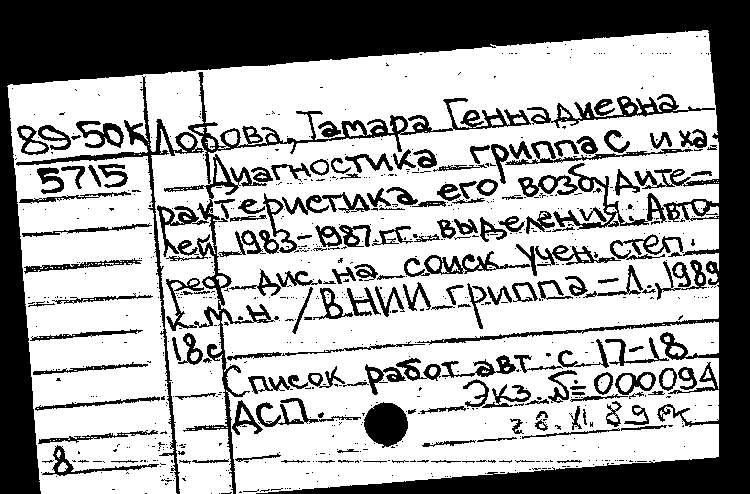 89-50К Лобова, Тамара Геннадиевна.
5715 Диагностика гриппа С и ха-
рактеристика его возбудите-
лей 1983-1987 гг. выделения: Авто-
реф. дис. на соиск. учен. степ.
к.м.н. / ВНИИ гриппа – Л., 1989
18 с.
Список работ авт. с 17-18.
Экз. № 000094
ДСП.
28.XI.89
8